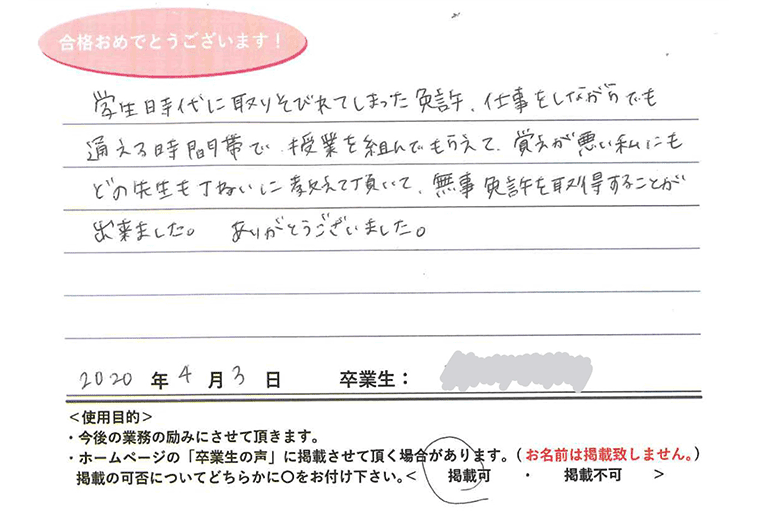 合格おめでとうございます！
学生時代に取りそびれてしまった免許、仕事をしながらでも
通える時間帯で、授業を組んでもらえて、覚えが悪い私にも
どの先生も丁ねいに教えて頂いて、無事免許を取得することが
出来ました。 ありがとうございました。
2020 年 4 月 3 日 卒業生：
＜使用目的＞
・今後の業務の励みにさせて頂きます。
・ホームページの「卒業生の声」に掲載させて頂く場合があります。（お名前は掲載致しません。）
掲載の可否についてどちらかに〇をお付け下さい。＜ 掲載可 ・ 掲載不可 ＞